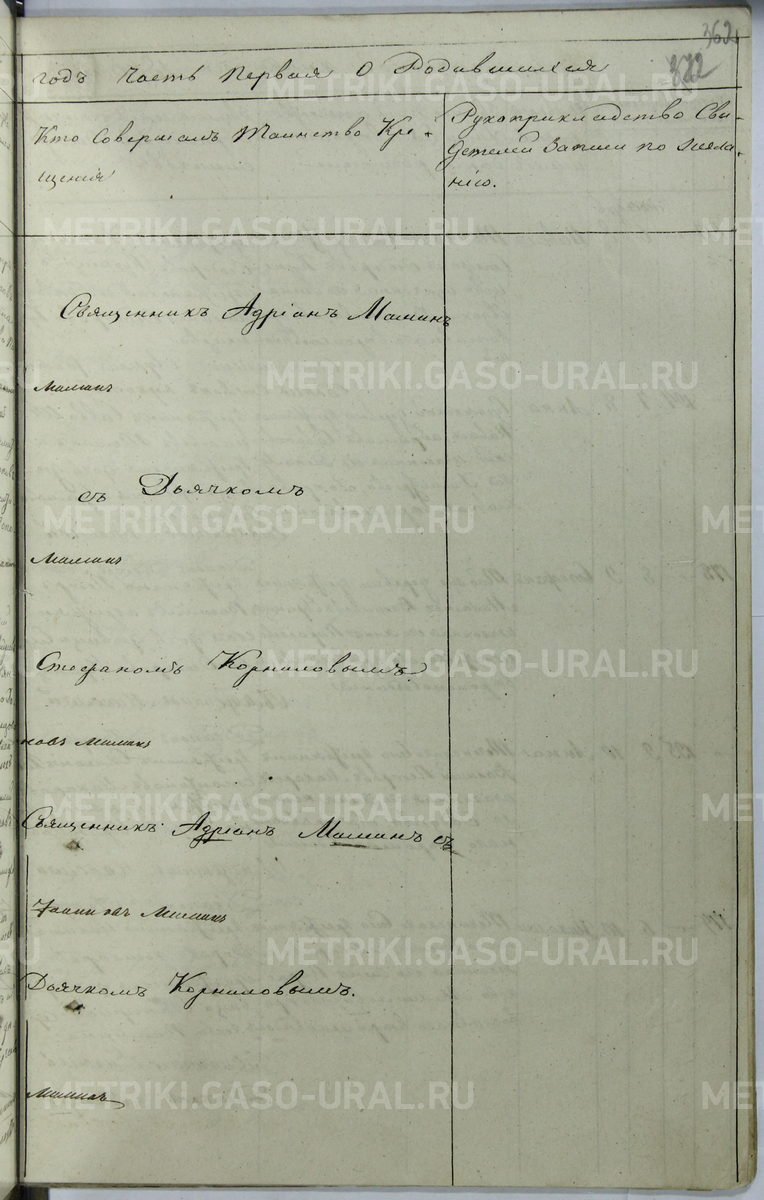 362
372
годъ Часть Первая О Родившихся
Кто Совершалъ Таинство Кре-
щения
Рукоприкладство Сви-
детелей Записи по жела-
нію.
Священникъ Адріанъ Маминъ
Маминъ
съ Дьячкомъ
Маминъ
Стефаномъ Корниловымъ
новъ Маминъ
Священникъ Адріанъ Маминъ съ
Маминъ
Дьячкомъ Корниловымъ.
Маминъ
METRIKI.GASO-URAL.RU